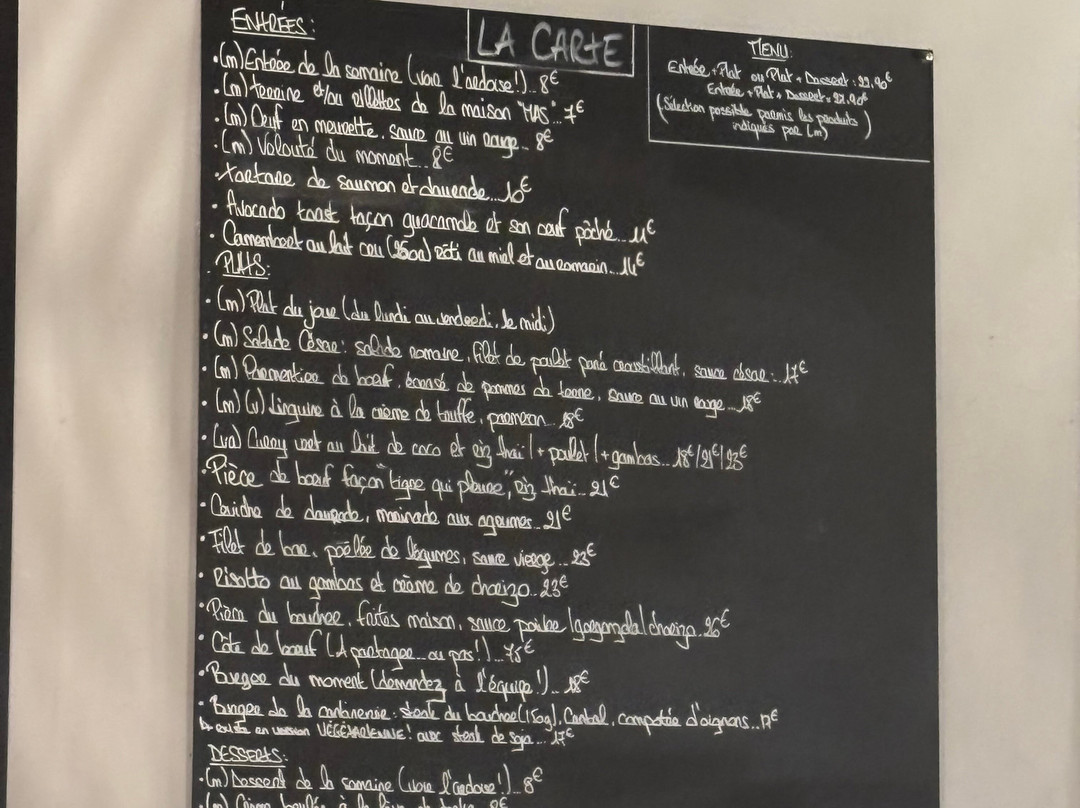 LA CARTE
MENU:
Entrée + Plat ou Plat + Dessert : 22,90€
Entrée + Plat + Dessert : 27,90€
(Sélection possible parmis les produits
indiqués par (m))
ENTRÉES:
• (m) Entrée de la semaine (voir l'ardoise!)... 8€
• (m) terrine et/ou rillettes de la maison "MAS"... 7€
• (m) Oeuf en meurette, sauce au vin rouge... 8€
• (m) Velouté du moment... 8€
• tartare de saumon et daurade... 10€
• Avocado toast façon guacamole et son oeuf pôché... 11€
• Camembert au lait cru (250g) rôti au miel et au romarin... 14€
• PLATS:
• (m) Plat du jour (du lundi au vendredi, le midi)
• (m) Salade César: salade romaine, filet de poulet pané croustillant, sauce césar... 17€
• (m) Parmentier de boeuf, écrasé de pommes de terre, sauce au vin rouge... 18€
• (m) (v) Linguine à la crème de truffe, parmesan... 18€
• (va) Curry vert au lait de coco et riz thaï / + poulet / + gambas... 18€/21€/23€
• Pièce de boeuf façon "tigre qui pleure", riz thaï... 21€
• Ceviche de daurade, marinade aux agrumes... 21€
• Filet de bar, poêlée de légumes, sauce vierge... 23€
• Risotto au gambas et crème de chorizo... 23€
• Pièce du boucher, frites maison, sauce poivre/gorgonzola/chorizo... 26€
• Côte de boeuf (A partager... ou pas!)... 75€
• Burger du moment (demandez à l'équipe!)... 18€
• Burger de la cantinerie: steak du boucher (150g), Cantal, compotée d'oignons... 17€
↳ existe en version VÉGÉTARIENNE! avec steak de soja... 17€
DESSERTS:
• (m) Dessert de la semaine (voir l'ardoise!)... 8€